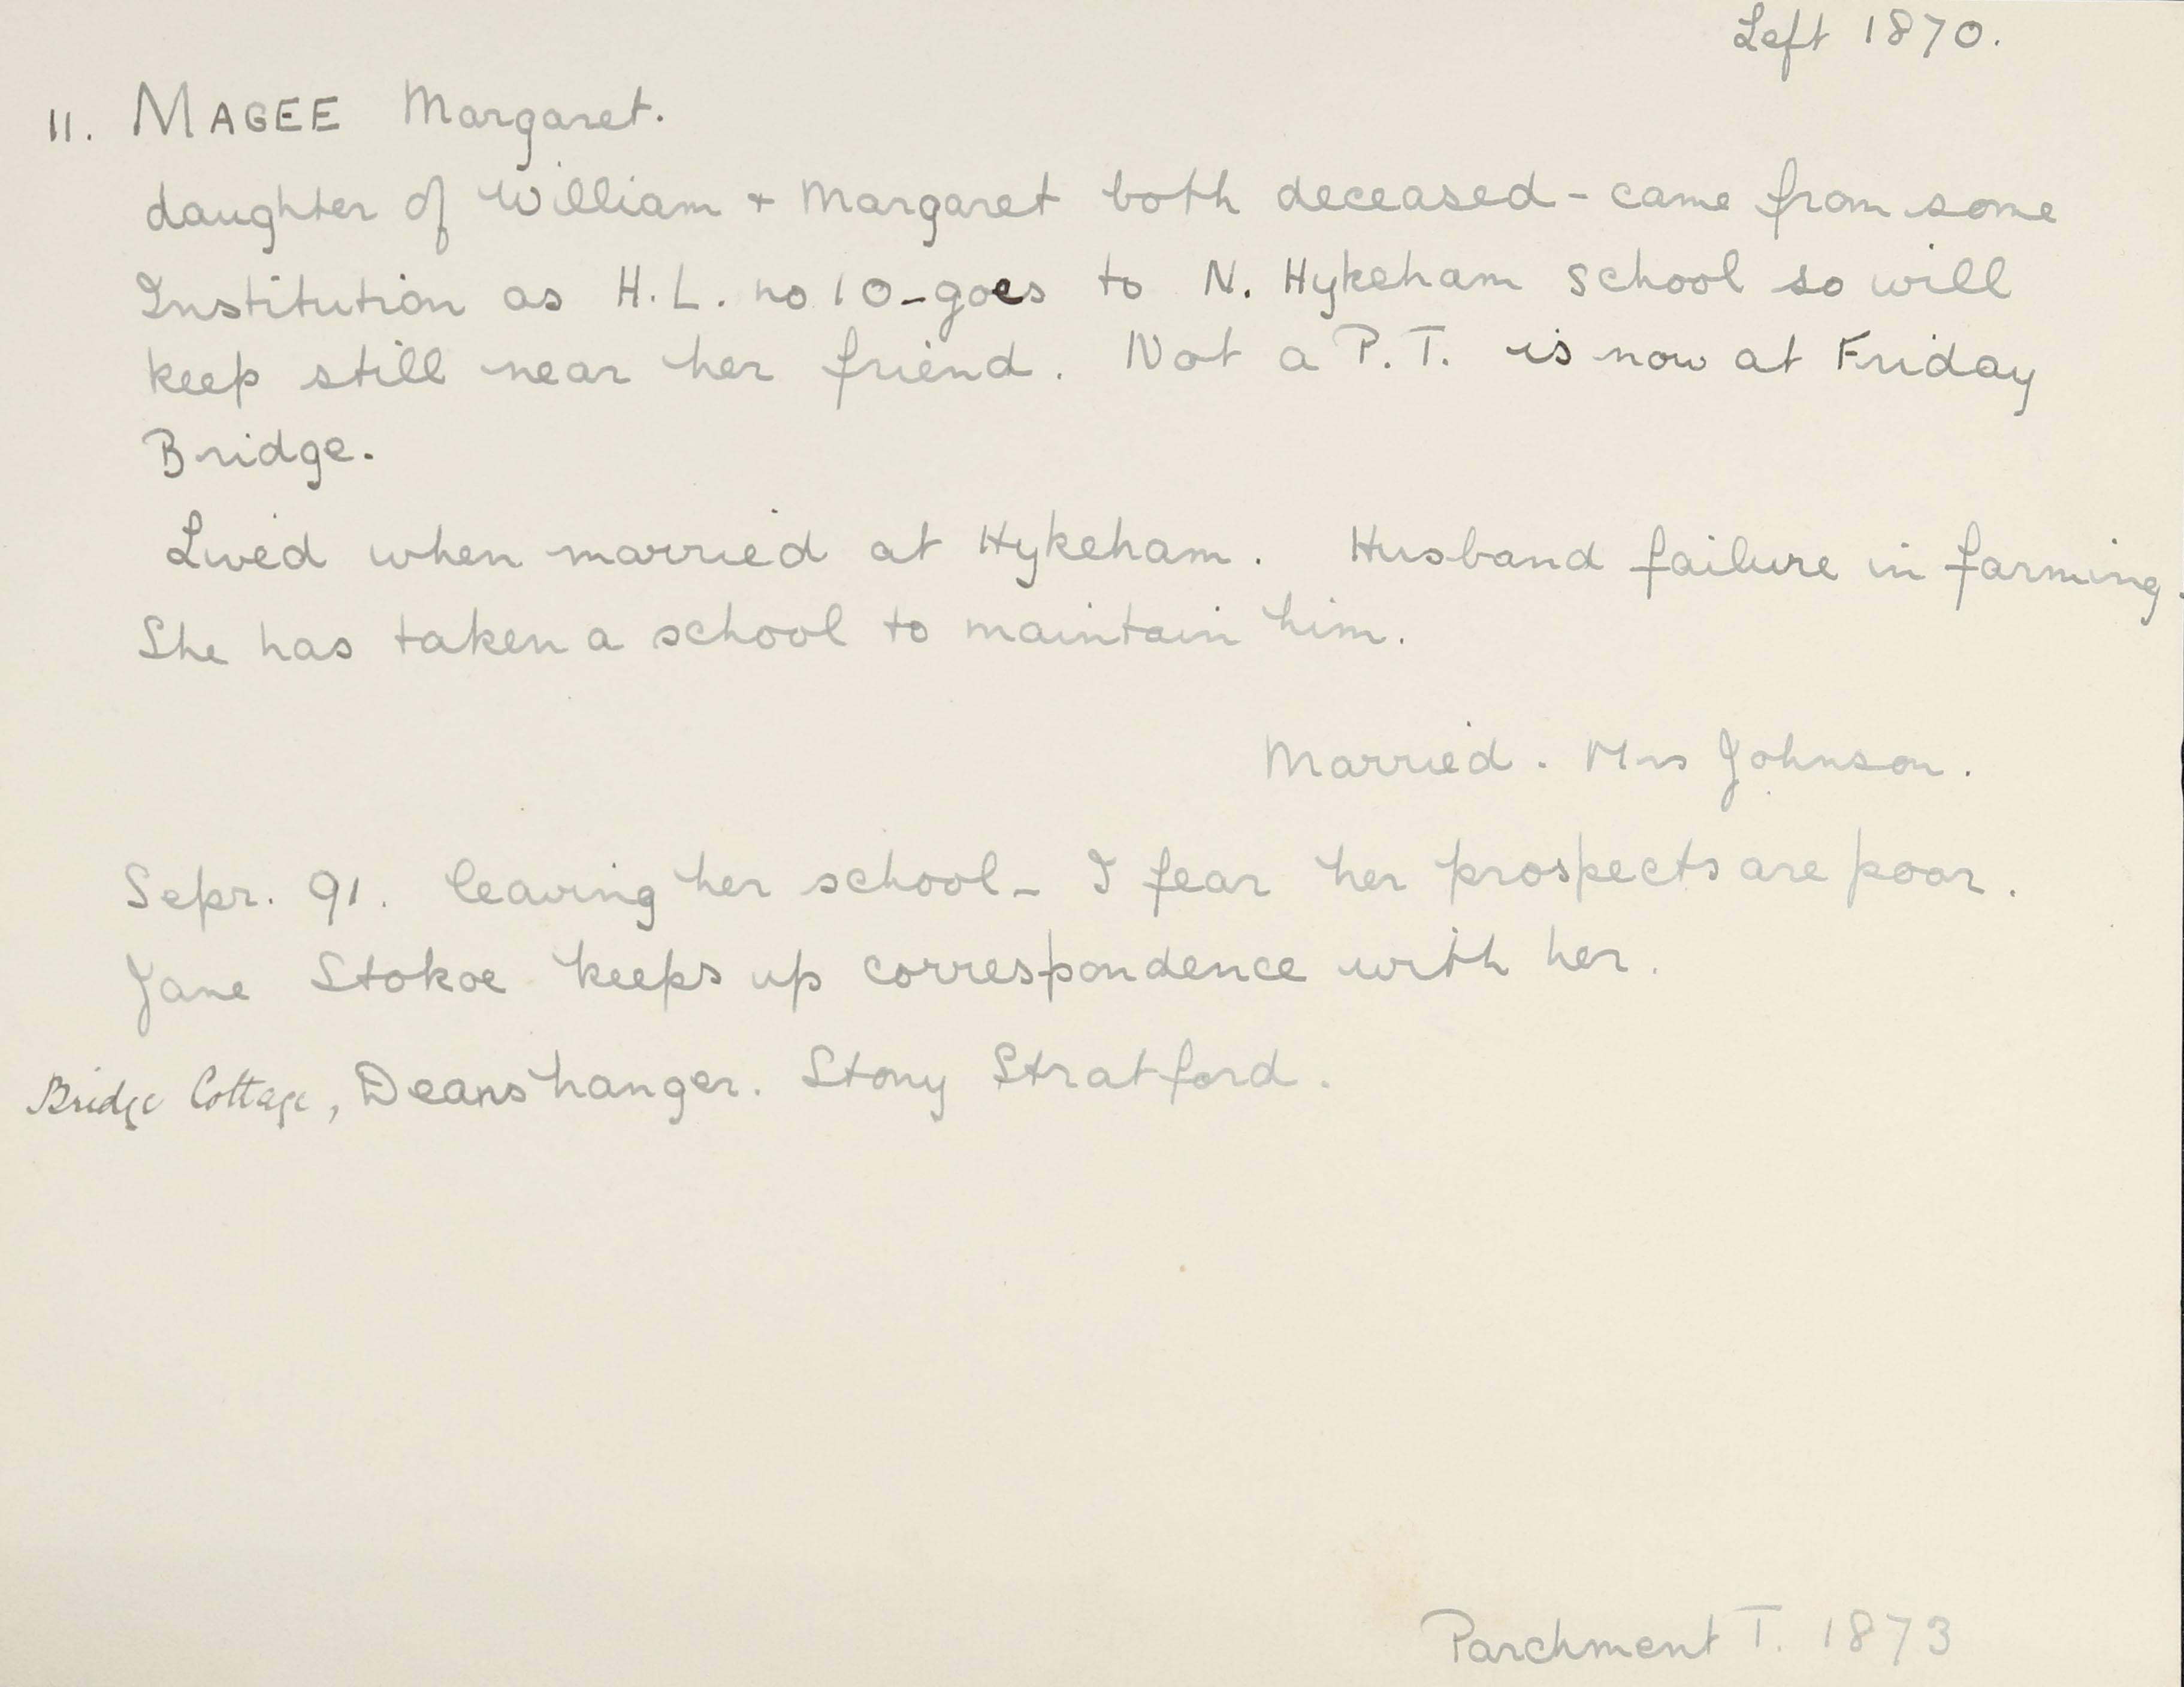 Left 1870.
11. MAGEE Margaret.
daughter of William + Margaret both deceased - came from some
Institution as H.L. no 10 - goes to N. Hykeham school so will
keep still near her friend. Not a P.T. is now at Friday
Bridge.
Lived when married at Hykeham. Husband failure in farming.
She has taken a school to maintain him.
Married. Mrs Johnson.
Sepr. 91. leaving her school - I fear her prospects are poor.
Jane Stokoe keeps up correspondence with her.
Bridge Cottage, Deanshanger. Stony Stratford.
Parchment T. 1873